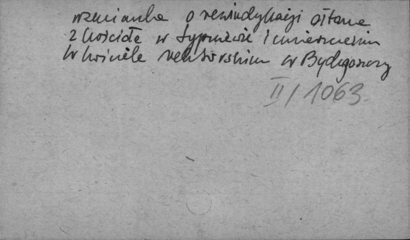 wzmianka o rewindykacji ołtarza
z kościoła w i umieszczeniu
w kościele w Bydgoszczy
II/1063.